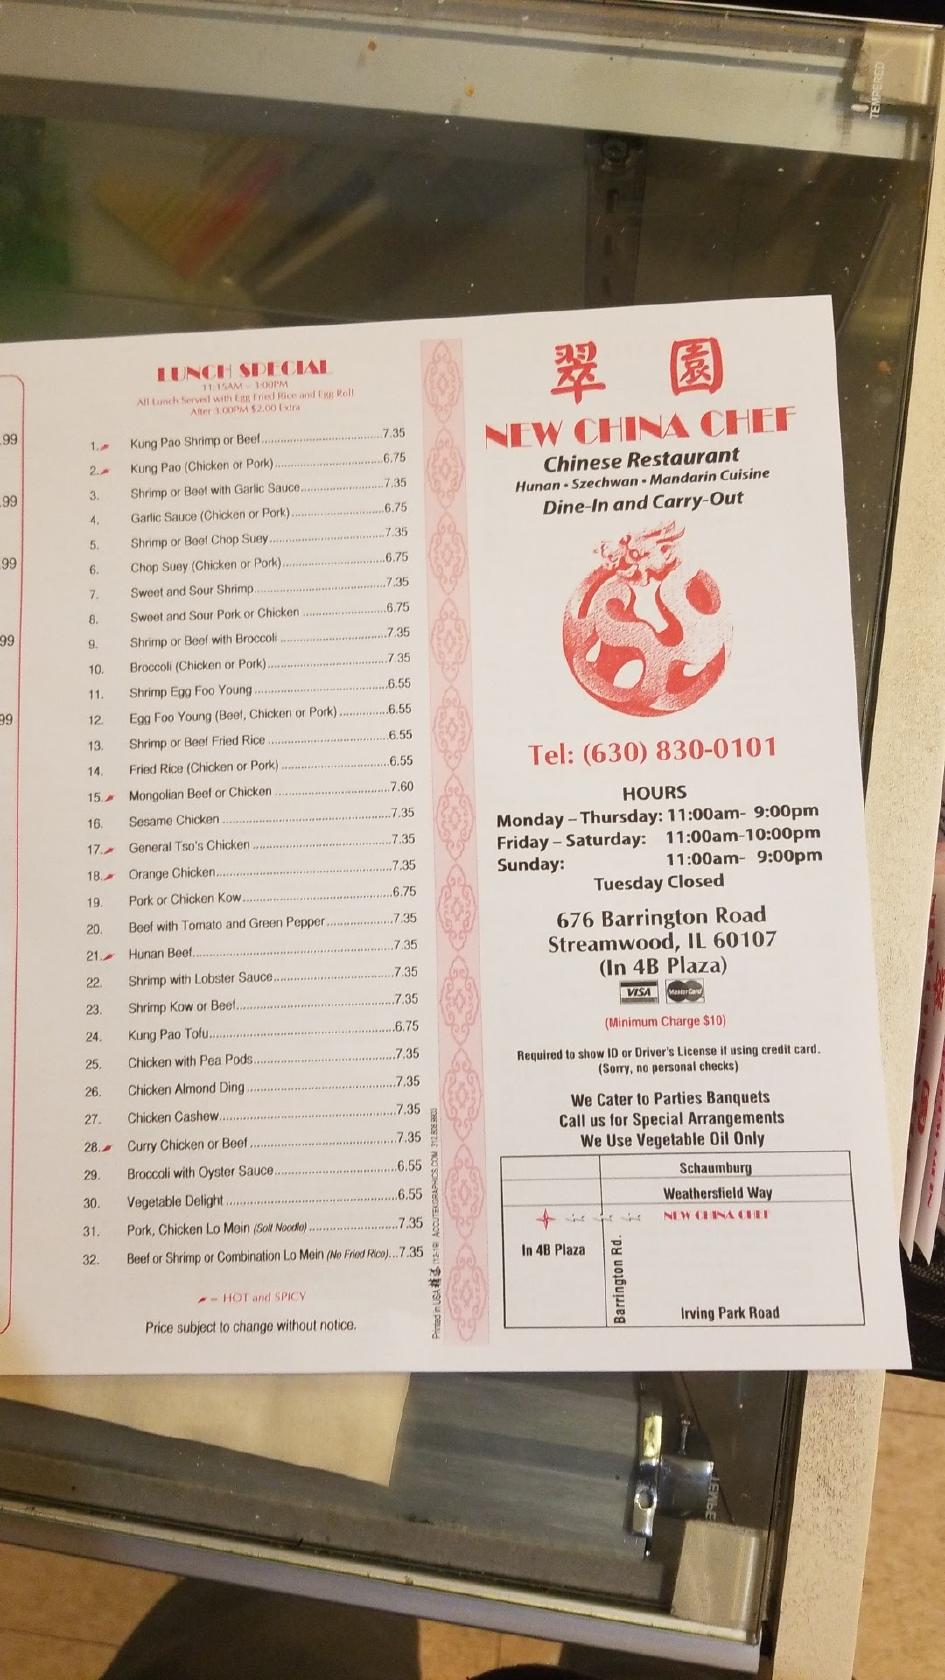 TEMPERED
.99
.99
.99
99
99
LUNCH SPECIAL
11:15AM - 3:00PM
All Lunch Served with Egg Fried Rice and Egg Roll
After 3:00PM $2.00 Extra
1. Kung Pao Shrimp or Beef 7.35
2. Kung Pao (Chicken or Pork) 6.75
3. Shrimp or Beef with Garlic Sauce 7.35
4. Garlic Sauce (Chicken or Pork) 6.75
5. Shrimp or Beef Chop Suey 7.35
6. Chop Suey (Chicken or Pork) 6.75
7. Sweet and Sour Shrimp 7.35
8. Sweet and Sour Pork or Chicken 6.75
9. Shrimp or Beef with Broccoli 7.35
10. Broccoli (Chicken or Pork) 7.35
11. Shrimp Egg Foo Young 6.55
12. Egg Foo Young (Beef, Chicken or Pork) 6.55
13. Shrimp or Beef Fried Rice 6.55
14. Fried Rice (Chicken or Pork) 6.55
15. Mongolian Beef or Chicken 7.60
16. Sesame Chicken 7.35
17. General Tso's Chicken 7.35
18. Orange Chicken 7.35
19. Pork or Chicken Kow 6.75
20. Beef with Tomato and Green Pepper 7.35
21. Hunan Beef 7.35
22. Shrimp with Lobster Sauce 7.35
23. Shrimp Kow or Beef 7.35
24. Kung Pao Tofu 6.75
25. Chicken with Pea Pods 7.35
26. Chicken Almond Ding 7.35
27. Chicken Cashew 7.35
28. Curry Chicken or Beef 7.35
29. Broccoli with Oyster Sauce 6.55
30. Vegetable Delight 6.55
31. Pork, Chicken Lo Mein (Soft Noodle) 7.35
32. Beef or Shrimp or Combination Lo Mein (No Fried Rice) 7.35
- HOT and SPICY
Price subject to change without notice.
Printed in USA (12-19) ACCUTEKGRAPHICS.COM 312.808.9903
翠 園
NEW CHINA CHEF
Chinese Restaurant
Hunan • Szechwan • Mandarin Cuisine
Dine-In and Carry-Out
Tel: (630) 830-0101
HOURS
Monday – Thursday: 11:00am- 9:00pm
Friday – Saturday: 11:00am-10:00pm
Sunday: 11:00am- 9:00pm
Tuesday Closed
676 Barrington Road
Streamwood, IL 60107
(In 4B Plaza)
VISA MasterCard
(Minimum Charge $10)
Required to show ID or Driver's License if using credit card.
(Sorry, no personal checks)
We Cater to Parties Banquets
Call us for Special Arrangements
We Use Vegetable Oil Only
Schaumburg
Weathersfield Way
NEW CHINA CHEF
In 4B Plaza
Barrington Rd.
Irving Park Road